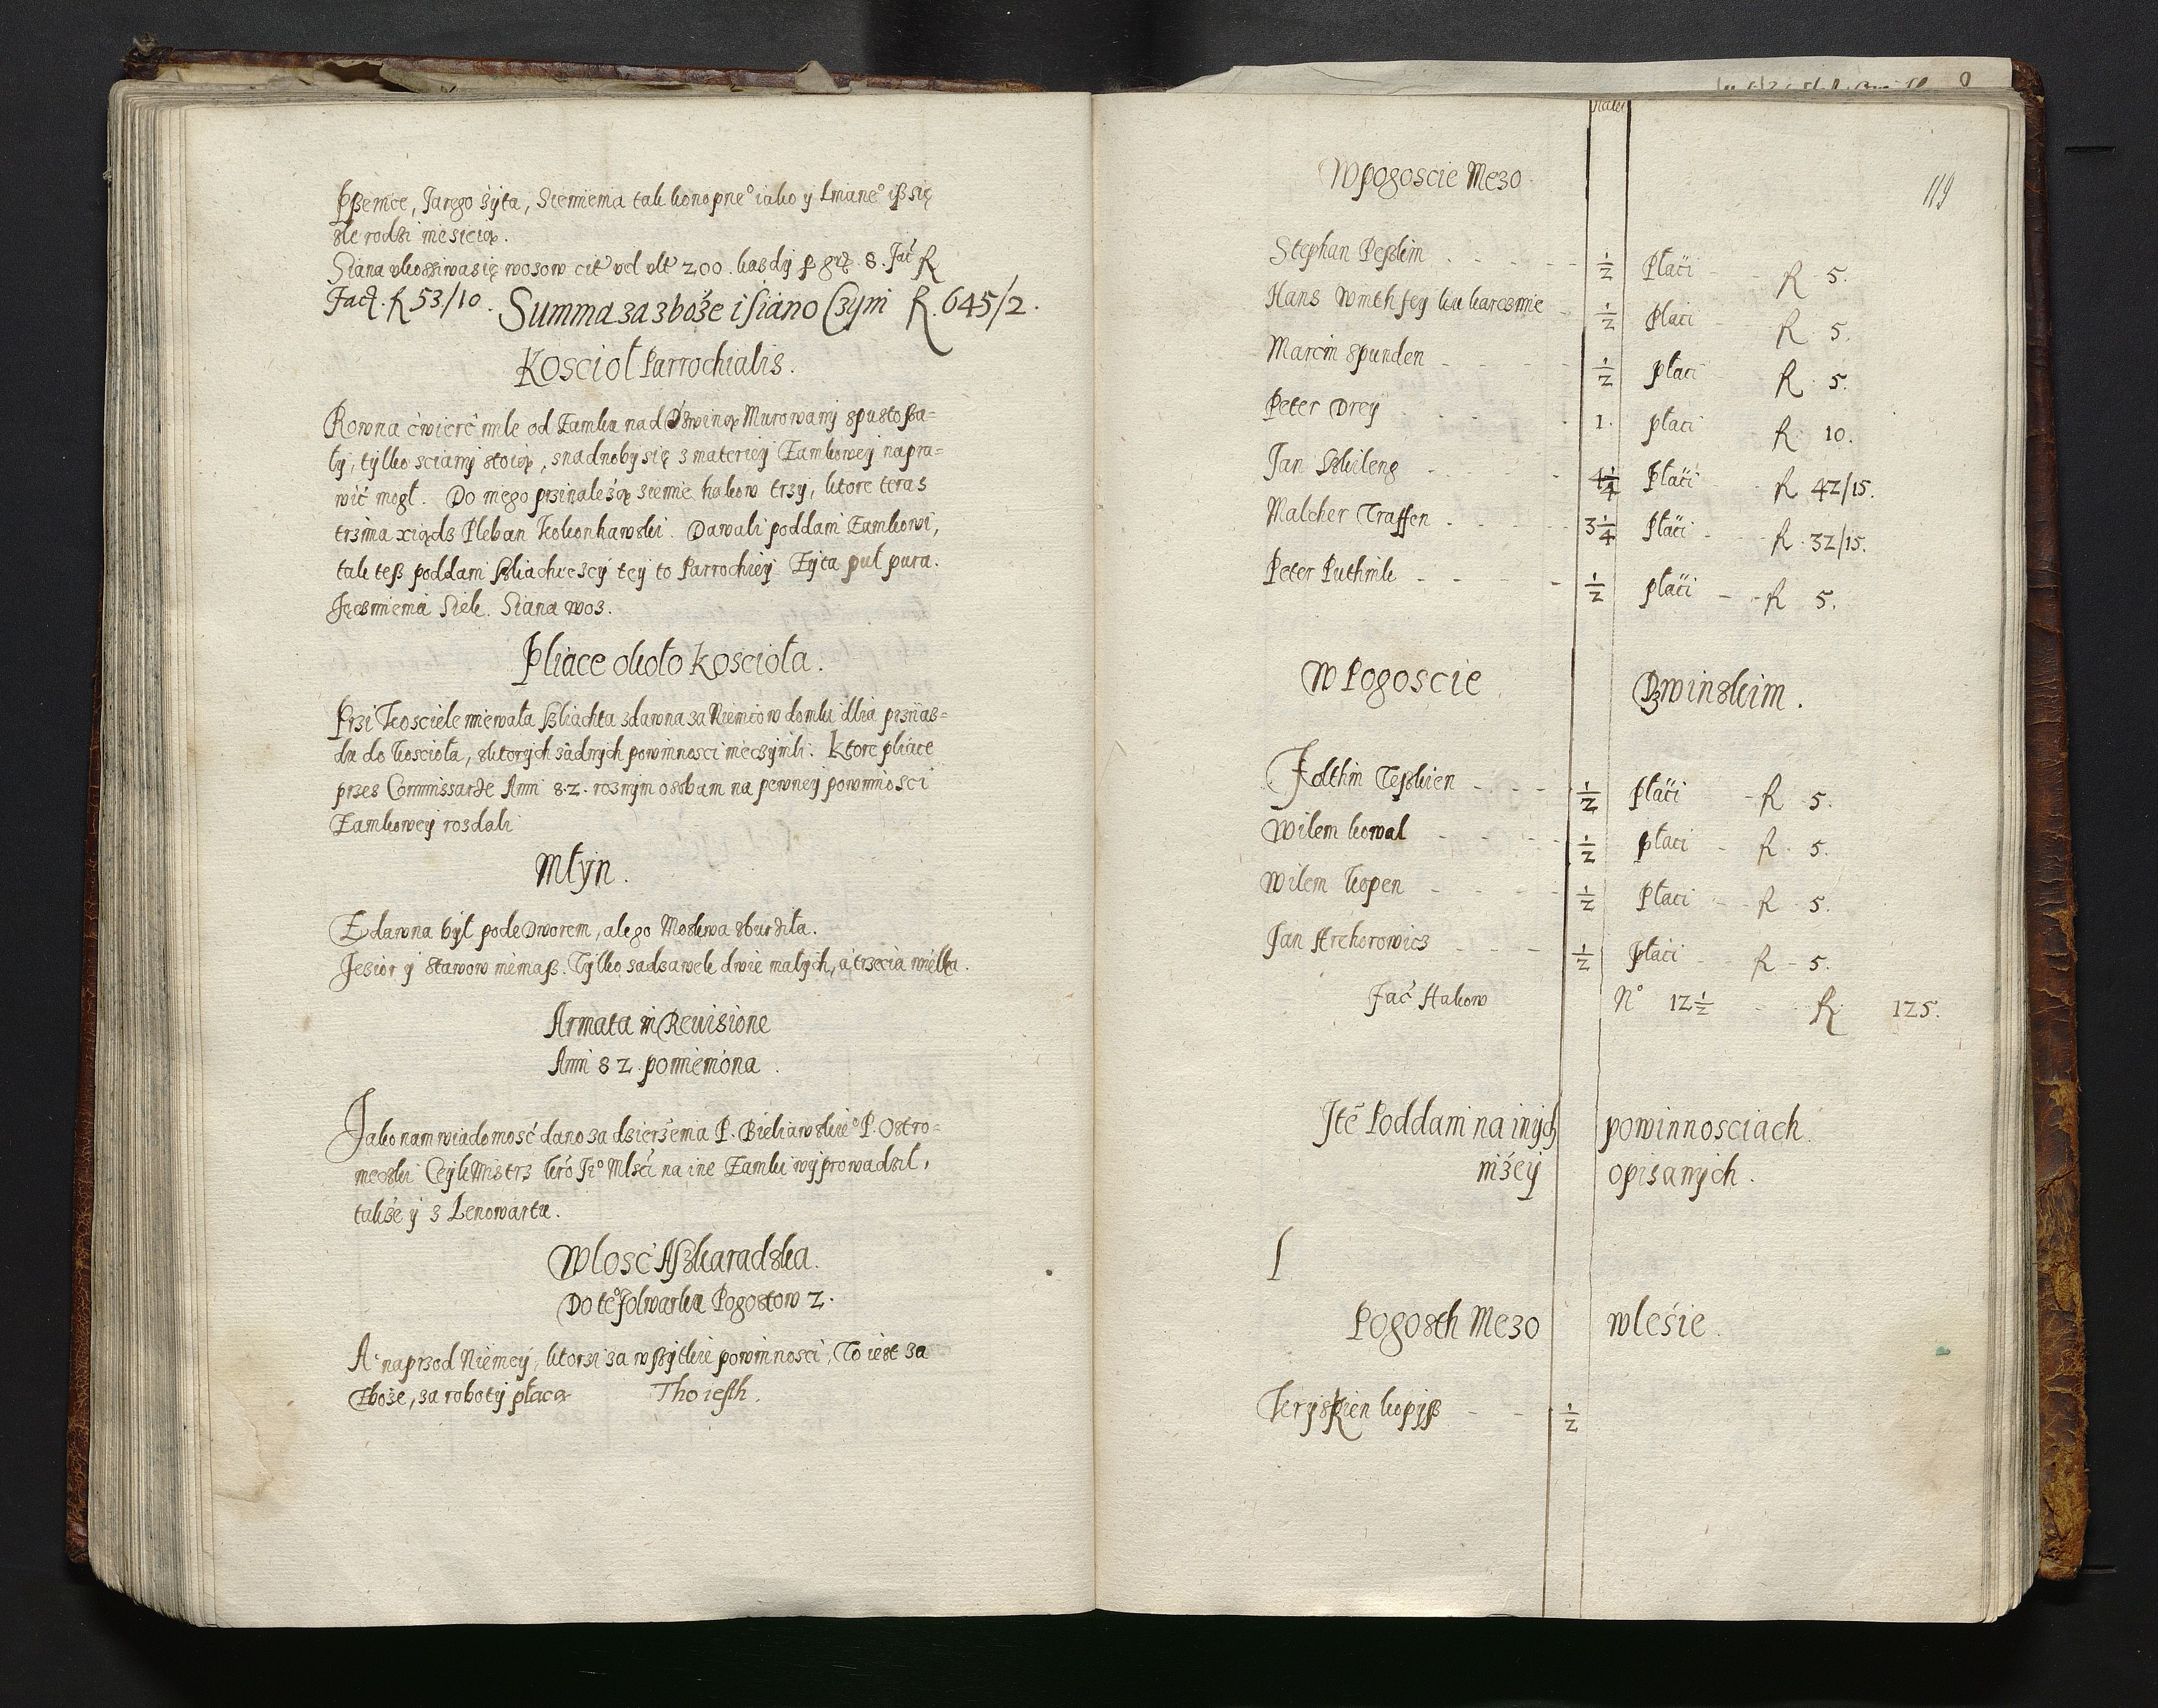 Pßenice, Jarego żyta, Siemienia tak konopne° iako y Lniane° iß się
źle rodzi nie sieią.
Siana ukosziwa się wozow cit vel ult 200. każdy p gr. 8. Fac R
Faci. R 53/10. Summa za zboże i siano Czyni R. 645/2.
Kosciol Parrochialis.
Rowna ćwierć mile od Zamku nad Dźwiną Murowany spustoßa=
ly, tylko sciany stoią, snadnoby się z materiey Zamkowey napra=
wić mogł. Do niego przinależą ziemie hakow trzy, ktore teras
trzima xiądz Pleban Kokonhawski. Dawali poddani Zamkowi,
tak teß poddani Szliacheccy tey to Parrochiey Żyta puł pura.
Jęczmienia Siek. Siana wos.
Pliace około kosciola.
Przi Kosciele miewała Szliachta zdawna za Niemcow domki dlia przijaz=
du do kosciola, zktorych żadnych powinnosci nieczynili. Ktore pliace
przes Commissarze Anni 82. roznym osobam na pewney powinnosci
Zamkowey rozdali
Młyn.
Zdawna był pode Dworem, ale go Moskwa zburziła.
Jezior y Stawow niemaß. Tylko sadzawek dwie małych, a trzecia wielka.
Armata in Revisione
Anni 82. pomieniona.
Jako nam wiadomość dano za dzierżenia P. Bieliawskie° P. Ostro=
meczki Ceyk Mistrz kro Je° Mlsci na ine Zamki wyprowadził,
takze y z Lenowartu.
Wlosć Aszkaradska.
Do te° folwarku Pogostow 2.
A naprzod Niemcy, ktorzi za wßytkie powinnosci, To iest za
Zboże, za roboty płacą Tho iesth.
119
W pogoscie Mezo
Stephan Peßlin ½ Płaci R 5.
Hans Winthsey ku karczmie ½ Płaci R 5.
Marcin Spunden ½ płaci R 5.
Peter Drey 1. płaci R 10.
Jan Szkileng 4¼ Płaci R 42/15.
Malcher Traffen 3¼ Płaci R 32/15.
Peter Puthnik ½ płaci R 5.
W Pogoscie Dzwinskim.
Jolthin Teßkien ½ płaci R 5.
Wilem kowal ½ płaci R 5.
Wilem kopen ½ Płaci R 5.
Jan Arehorowicz ½ Płaci R 5.
Fac Hakow N° 12½ R 125.
Jtē Poddani na inych powinnosciach
niżey opisanych.
Pogosth Mezo wlesie.
Kryskien kopyß ½